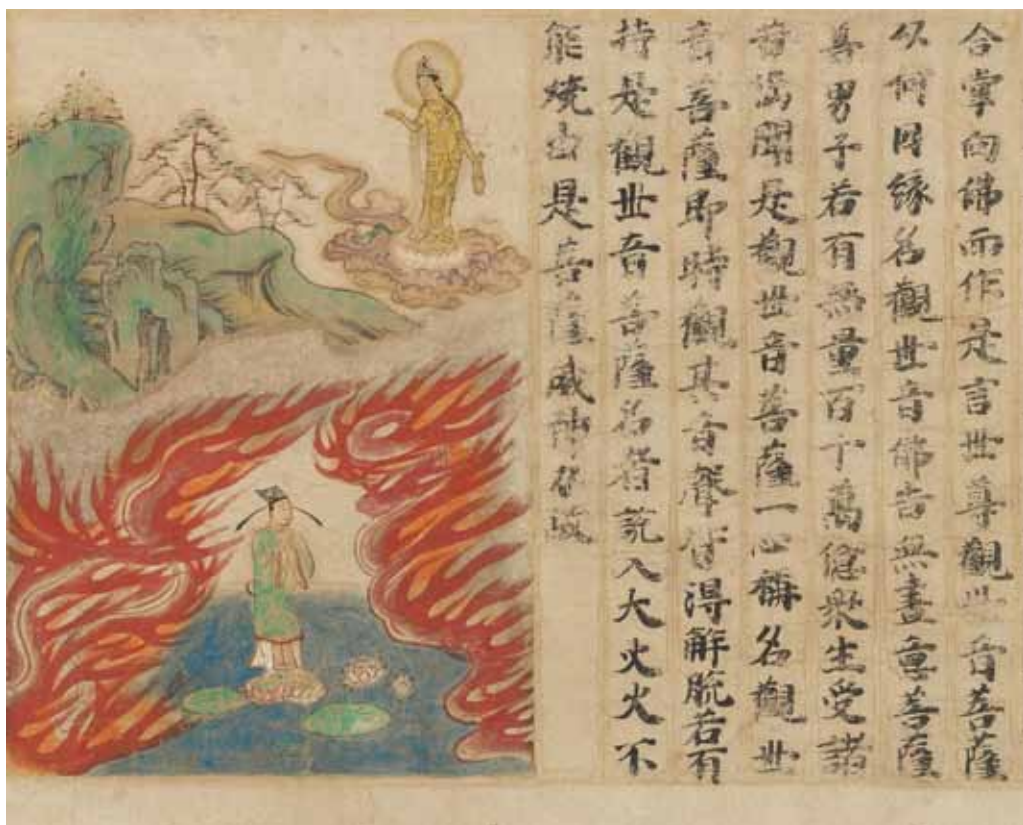 合掌向佛而作是言世尊觀世音菩薩
以何因緣名觀世音佛告無盡意菩薩
善男子若有無量百千萬億衆生受諸
苦惱聞是觀世音菩薩一心稱名觀世
音菩薩即時觀其音聲皆得解脫若有
持是觀世音菩薩名者設入大火火不
能燒由是菩薩威神力故